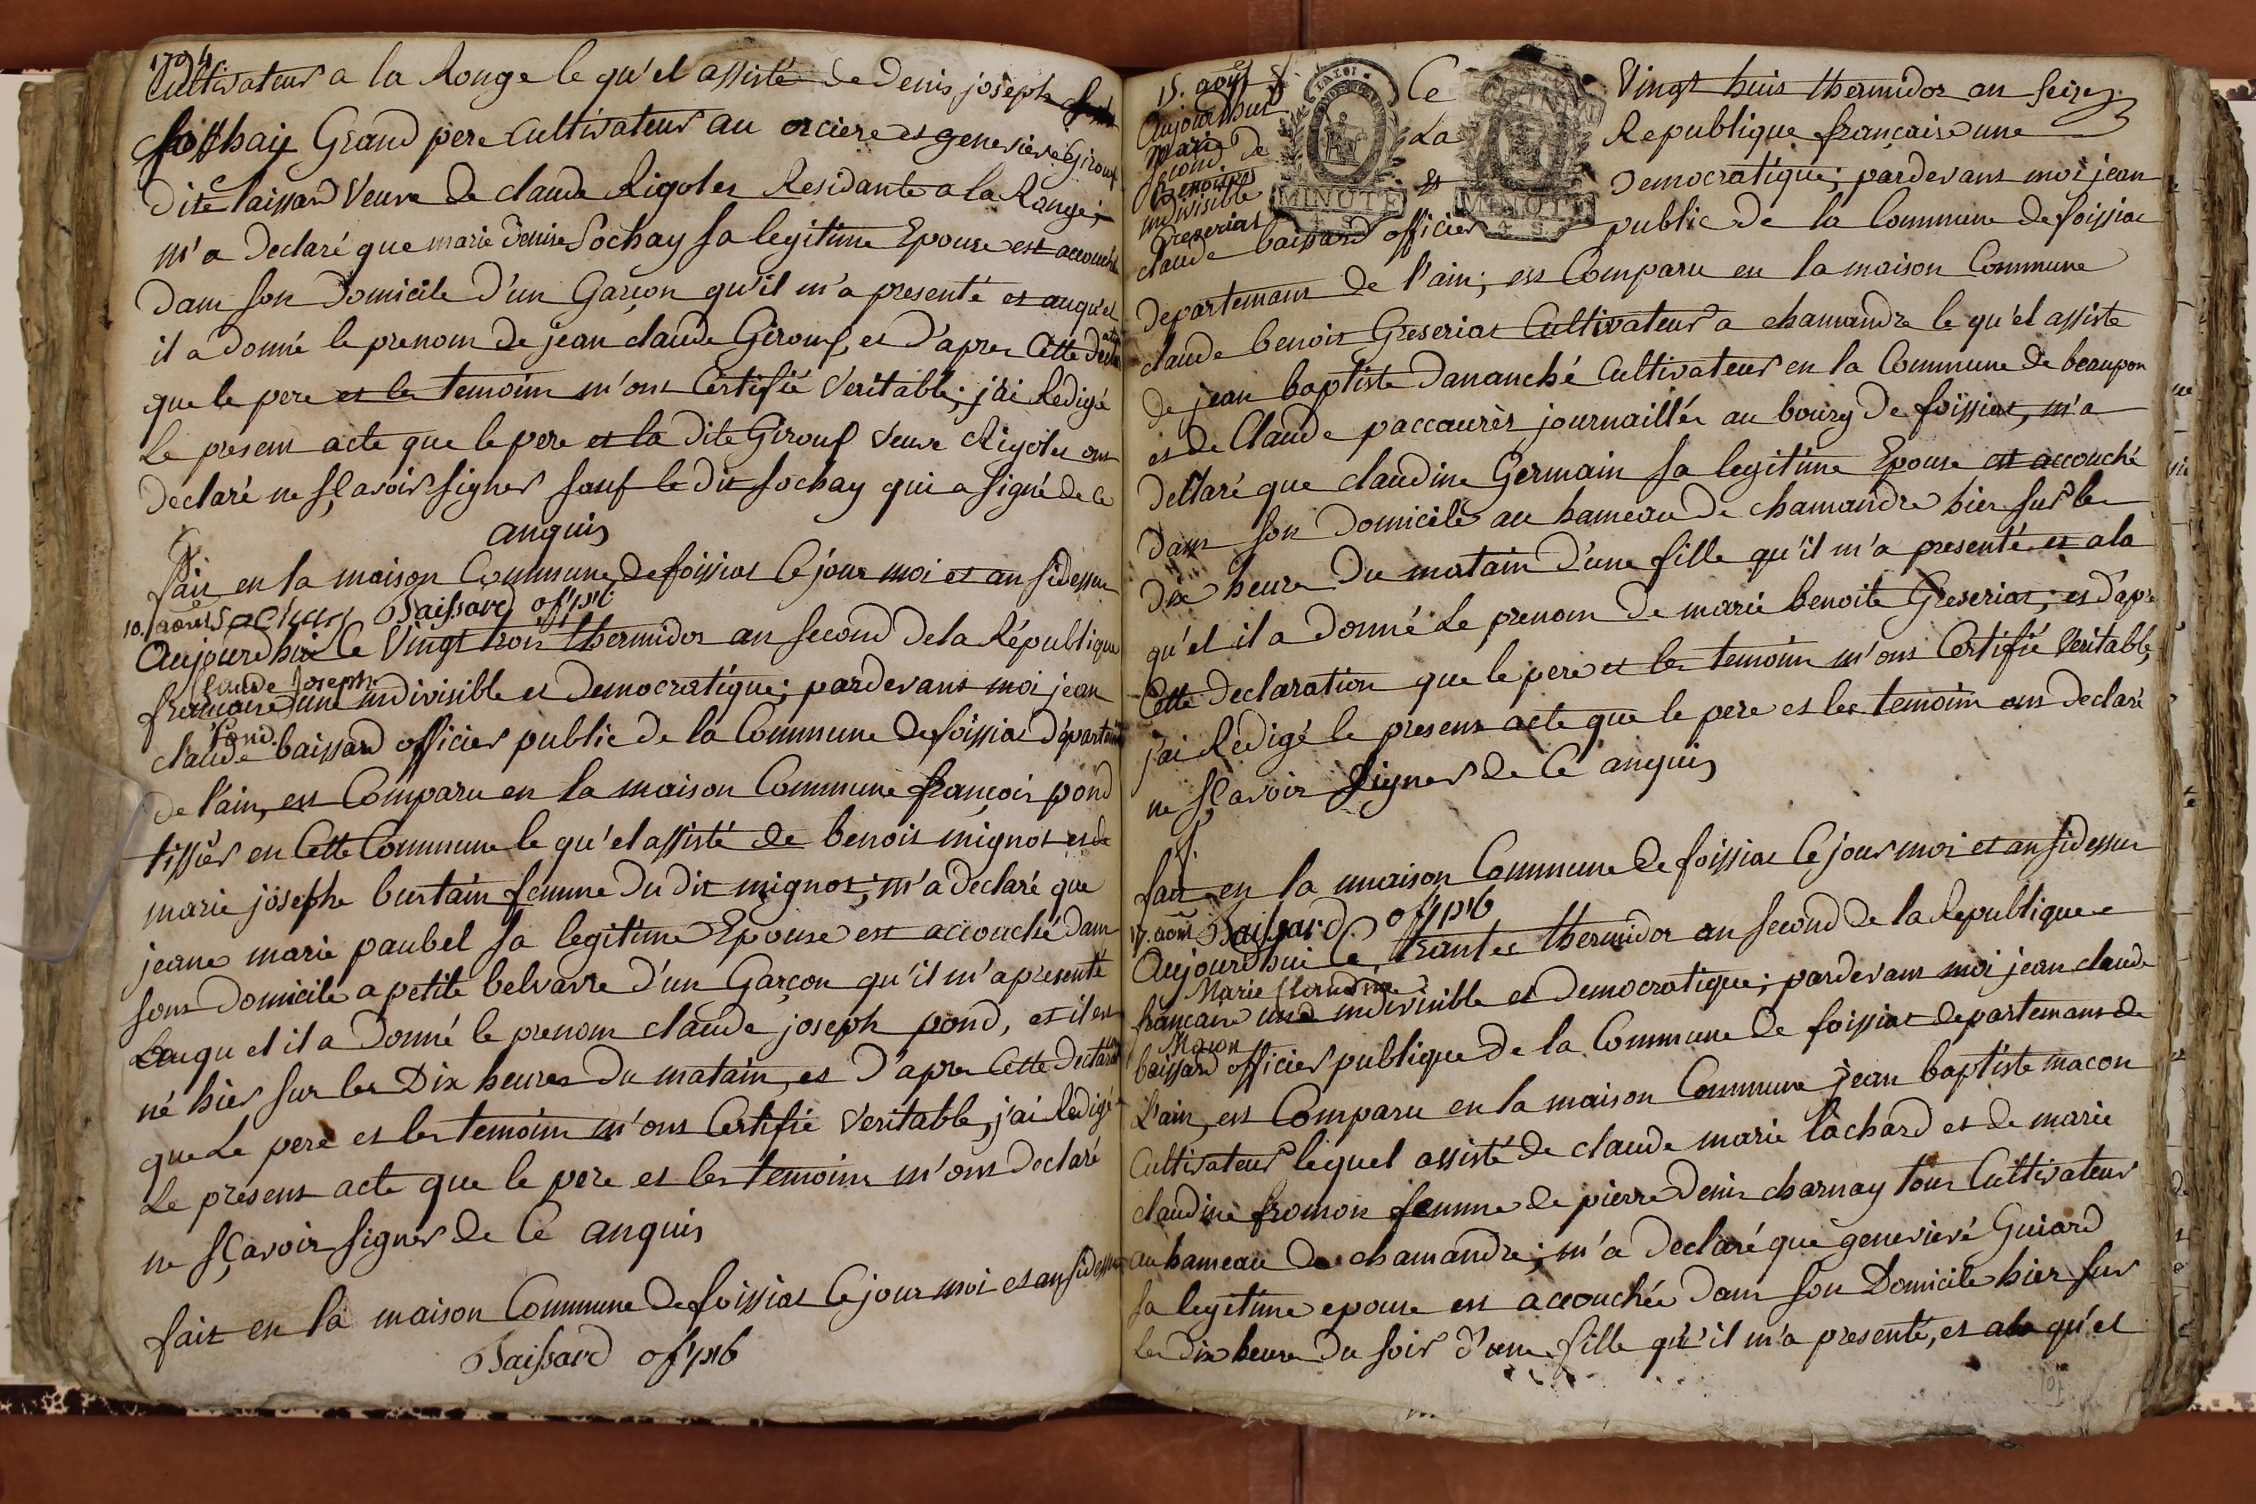 1794
Cultivateur a la Ronge le qu'el assisté de Denis joseph
sochay Grand pere Cultivateur au orciere et genevieve Girouf
dite baissard Veuve de claude Rigolet Residante a la Ronge;
m'a declaré que marie denise Sochay sa legitime Epouse est accouché
dans son domicile d'un Garçon qu'il m'a presenté et auqu'el
il a donné le prenom de jean claude Girouf, et d'apres Cette
que le pere et les temoins m'ont Certifié Veritable, j'ai Redigé
Le present acte que le pere et la dite Girouf veuve Rigolet ont
declaré ne sçavoir signer sauf le dit sochay qui a signé de ce
anquis
fait en la maison Commune de foissiat ce jour moi et an sidessus
10. aout sochay Baissard of pb
Aujourdhui ce Vingt trois thermidor an second de la République
Claude Joseph
francaise une indivisible et democratique; pardevant moi jean
Pond.
claude baissard officier public de la Commune de foissiat departement
de l'ain, est Comparu en la maison Commune françois pond
tissier en Cette Commune le qu'el assisté de benoit mignot et de
marie josephe burtain femme du dit mignot; m'a declaré que
jeane marie paubel sa legitime Epouse est accouché dans
sont domicile a petite belvavre d'un Garçon qu'il m'a presenté
auqu'el il a donné le prenom claude joseph pond, et il est
né hier sur les Dix heures du matain, et d'apres Cette declaration
que Le pere et les temoins m'ont Certifié Veritable, j'ai Redigé
Le present acte que le pere et les temoins m'ont declaré
ne sçavoir signer de Ce anquis
fait en la maison Commune de foissiat ce jour moi et an sidessus
Baissard of pb
15. aout
Aujourdhui Ce Vingt huit thermidor an
Marie La Republique francaise une
second de
Benoite
indivisible et Democratique; pardevant moi jean
Greseriat
claude baissard officier public de la Commune de foissiat
MINUTE
4 S.
MINUTE
4 S.
departemant de l'ain; est Comparu en la maison Commune
claude benoit Greseriat Cultivateur a chamandre le qu'el assiste
de jean baptiste dananché Cultivateur en la Commune de beaupon
et de Claude paccaurés journaillér au bourg de foissiat, m'a
declaré que claudine Germain sa legitime Epouse est accouché
dans son domicile au hameau de chamandre hier sur les
dix heure du matain d'une fille qu'il m'a presenté et a la
qu'el il a donné Le prenom de marie benoite Greseriat; et d'apres
Cette declaration que le pere et les temoins m'ont Certifié Veritable,
j'ai Redigé le present acte que le pere et les temoins ont declaré
ne sçavoir signer de Ce anquis
fait en la maison Commune de foissiat ce jour moi et an sidessus
17. aout Baissard of pb
Aujourdhui Ce trante thermidor an second de la Republique
Marie Claudine
francaise une indivisible et democratique; pardevant moi jean claude
Macon
baissard officier publique de la Commune de foissiat departemant de
L'ain, est Comparu en la maison Commune jean baptiste macon
Cultivateur lequel assisté de claude marie lachard et de marie
claudine fromon femme de pierre denis charnay tous Cultivateur
au hameau de chamandre; m'a declaré que genevieve Guiard
sa legitime epouse est accouchée dans son Domicile hier sur
les dix heure du soir d'une fille qu'il m'a presenté, et a la qu'el